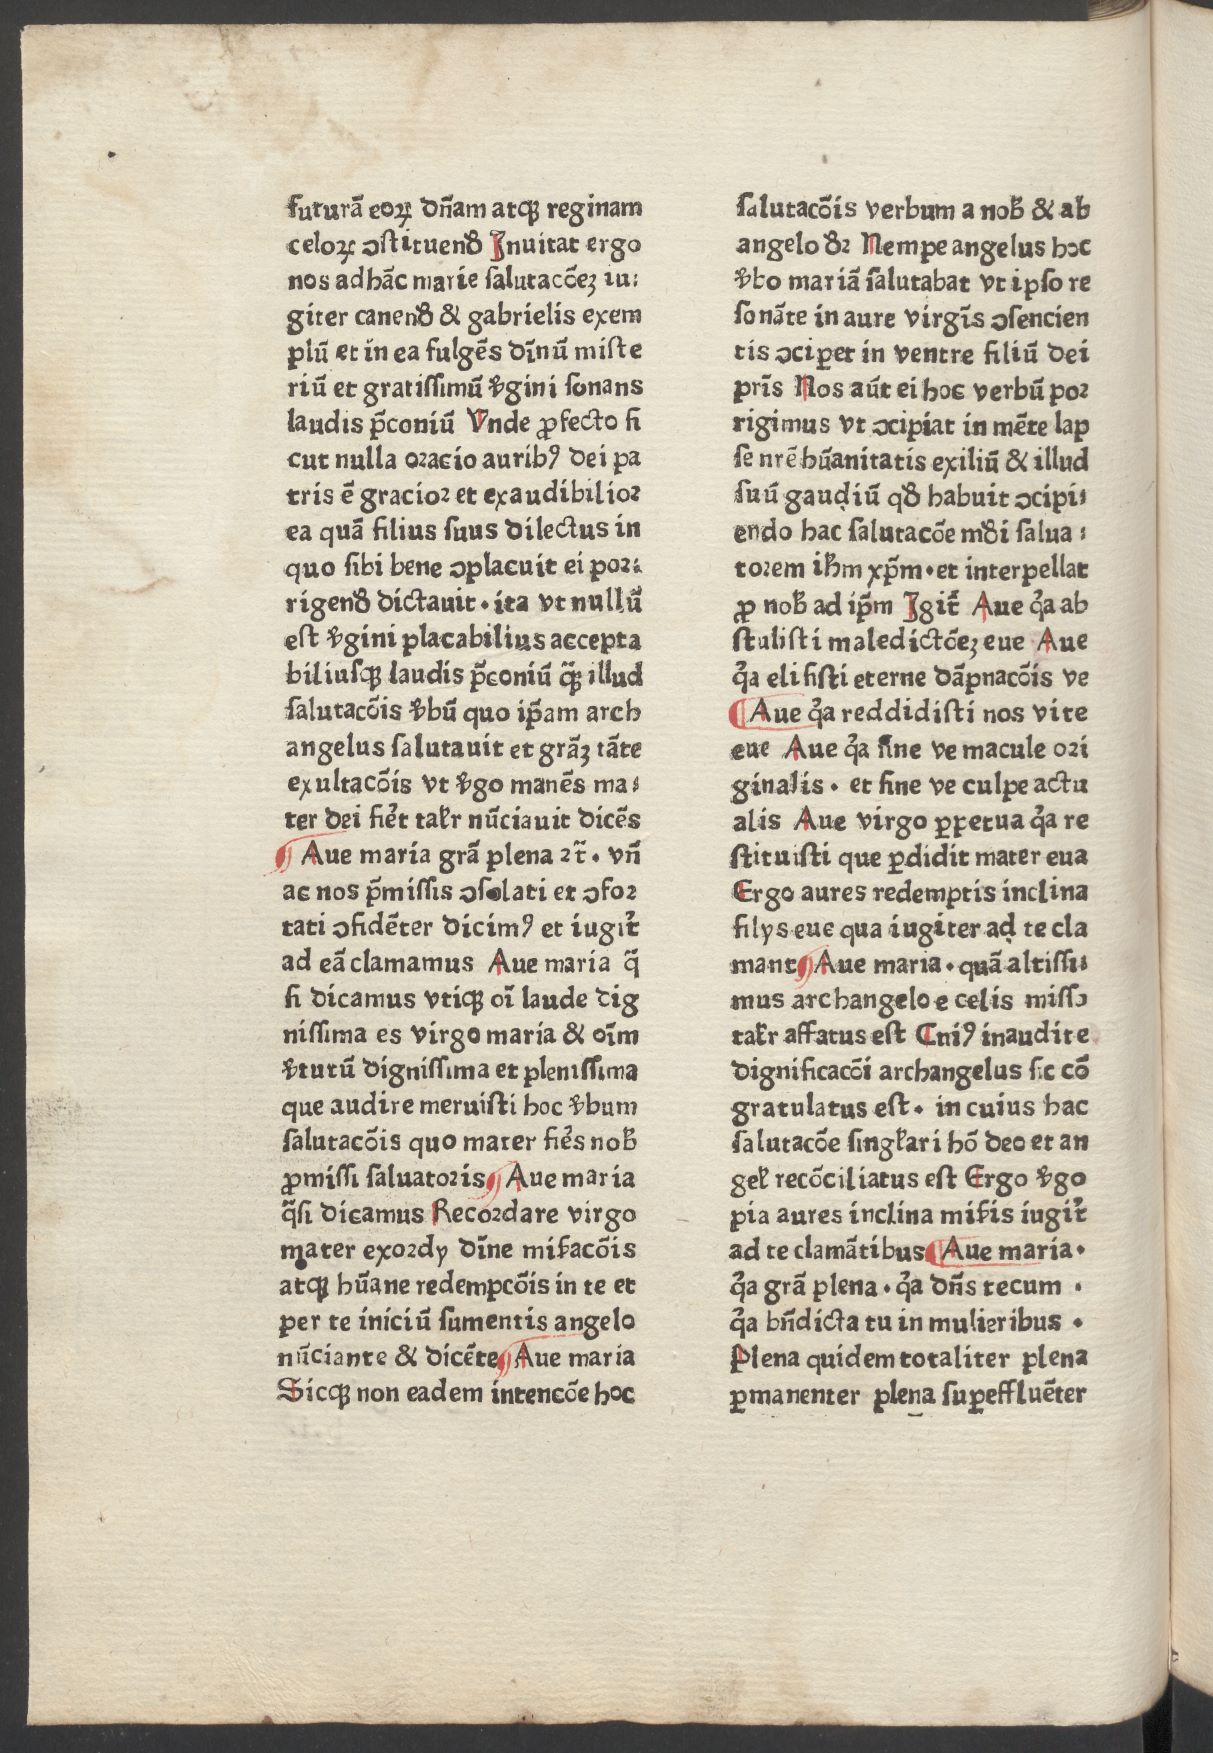 futurã eoꝝ dñam atqꝫ reginam
celoꝝ ꝯstituendꝰ Inuitat ergo
nos ad hãc marie salutacõeꝫ iu⸗
giter canendꝰ & gabrielis exem
plũ et in ea fulgẽs dĩnũ miste
riũ et gratissimũ ꝟgini sonans
laudis p̃coniũ Vnde ꝓfecto si
cut nulla oracio auribꝰ dei pa
tris ẽ gracior et exaudibilior
ea quã filius suus dilectus in
quo sibi bene ꝯplacuit ei por⸗
rigendꝰ dictauit · ita vt nullũ
est ꝟgini placabilius accepta
biliusqꝫ laudis p̃coniũ q̃ꝫ illud
salutacõis ꝟbũ quo ip̃am arch
angelus salutauit et grãꝫ tãte
exultacõis vt ꝟgo manẽs ma⸗
ter dei fier̃t talr̃ nũciauit dicẽs
Aue maria grã plena ⁊c̃ · vñ
ac nos p̃missis ꝯsolati et ꝯfor
tati ꝯfidẽter dicimꝰ et iugit̃
ad eã clamamus Aue maria q̃
si dicamus vtiqꝫ oĩ laude dig
nissima es virgo maria & oĩm
ꝟtutũ dignissima et plenissima
que audire meruisti hoc ꝟbum
salutacõis quo mater fies̃ nob̃
ꝓmissi saluatoris Aue maria
q̃si dicamus Recordare virgo
mater exordy dĩne miẜacõis
atqꝫ hũane redempcõis in te et
per te iniciũ sumentis angelo
nũciante & dicẽte Aue maria
Sicqꝫ non eadem intencõe hoc
salutacõis verbum a nob̃ & ab
angelo dr̃ Nempe angelus hoc
ꝟbo mariã salutabat vt ipso re
sonãte in aure virgĩs ꝯsencien
tis ꝯciꝑet in ventre filiũ dei
pr̃is Nos aũt ei hoc verbũ por
rigimus vt ꝯcipiat in mẽte lap
se nrẽ hũanitatis exiliũ & illud
suũ gaudiũ qd̃ habuit ꝯcipi⸗
endo hac salutacõe mdĩ salua⸗
torem ihm̃ xp̃m · et interpellat
ꝓ nob̃ ad ip̃m Igit̃ Aue q̃a ab
stulisti maledictõeꝫ eue Aue
q̃a elisisti eterne dãpnacõis ve
Aue q̃a reddidisti nos vite
eue Aue q̃a sine ve macule ori
ginalis · et sine ve culpe actu
alis Aue virgo ꝑpetua q̃a re
stituisti que ꝑdidit mater eua
Ergo aures redemptis inclina
filys eue qua iugiter ad te cla
mant Aue maria · quã altissi⸗
mus archangelo e celis misso
talr̃ affatus est Cuiꝰ inaudite
dignificacõi archangelus sic cõ
gratulatus est · in cuius hac
salutacõe singl̃ari hõ deo et an
gel̃ recõciliatus est Ergo ꝟgo
pia aures inclina miẜis iugit̃
ad te clamãtibus Aue maria ·
q̃a grã plena · q̃a dñs tecum ·
q̃a bñdicta tu in mulieribus ·
Plena quidem totaliter plena
ꝑmanenter plena suꝑeffluẽter